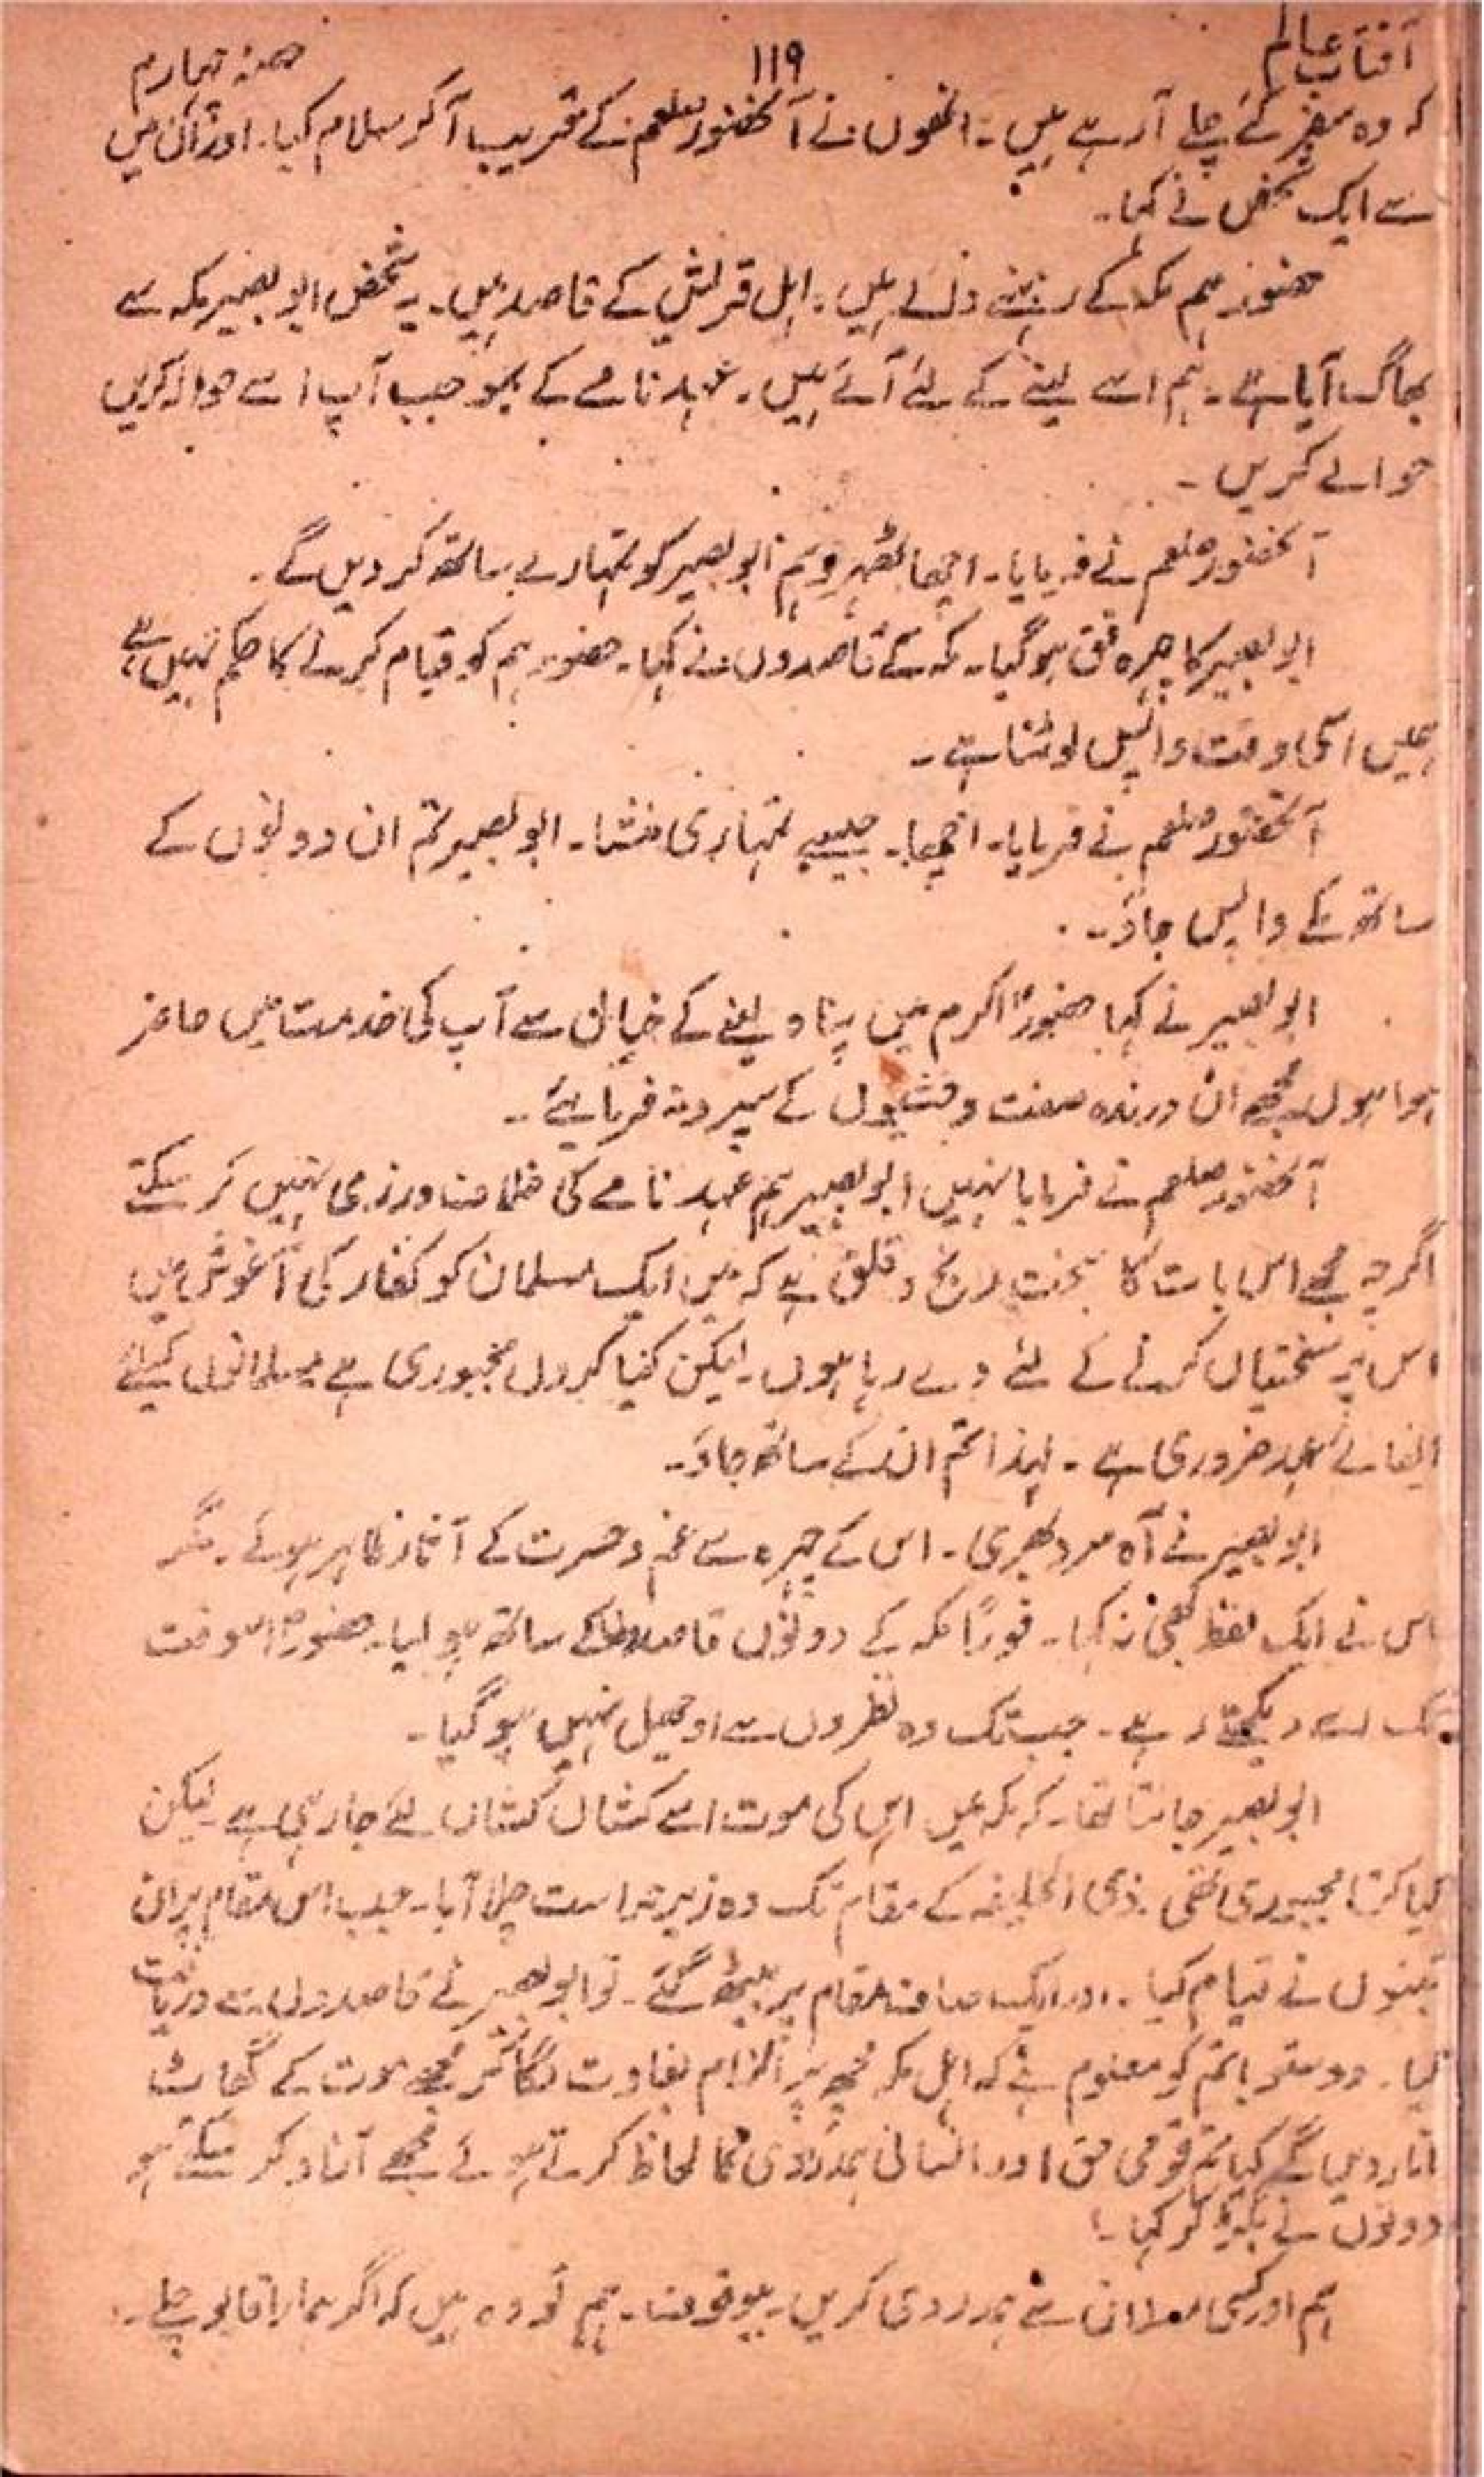 آفتاب عالم ۱۱۹ حصہ چہارم
کہ وہ سفر کئے چلے آ رہے ہیں۔ انھوں نے آنحضور صلعم کے قریب آ کر سلام کیا۔ اور ان میں
سے ایک شخص نے کہا۔
حضور ہم مکہ کے رہنے والے ہیں۔ اہل قریش کے قاصد ہیں۔ یہ شخص ابو بصیر مکہ سے
بھاگ آیا ہے۔ ہم اسے لینے کے لئے آئے ہیں۔ عہد نامے کے بموجب آپ اسے حوالہ کریں
حوالے کریں۔
آنحضور صلعم نے فرمایا۔ اچھا ٹھہرو ہم ابو بصیر کو تمہارے ساتھ کر دیں گے۔
ابو بصیر کا چہرہ فق ہو گیا۔ مکہ کے قاصدوں نے کہا۔ حضور ہم کو قیام کرنے کا حکم نہیں ہے
ہمیں اسی وقت واپس لوٹنا ہے۔
آنحضور صلعم نے فرمایا۔ اچھا۔ جیسے تمہاری منشا۔ ابو بصیر تم ان دونوں کے
ساتھ کے واپس جاؤ۔
ابو بصیر نے کہا حضورؐ اکرم میں پناہ لینے کے خیال سے آپ کی خدمت میں حاضر
ہوا ہوں مجھے ان درندہ صفت وحشیوں کے سپرد نہ فرمایئے۔
آنحضور صلعم نے فرمایا نہیں ابو بصیر ہم عہد نامے کی خلاف ورزی نہیں کر سکتے
اگرچہ مجھے اس بات کا سخت رنج و قلق ہے کہ میں ایک مسلمان کو کفار کی آغوش میں
اس پر سختیاں کرنے کے لئے دے رہا ہوں۔ لیکن کیا کروں مجبوری ہے مسلمانوں کیلئے
ایفائے عہد ضروری ہے۔ لہذا تم ان کے ساتھ جاؤ۔
ابو بصیر نے آہ سرد بھری۔ اس کے چہرہ سے غم و حسرت کے آثار ظاہر ہوئے۔ مگر
اس نے ایک لفظ بھی نہ کہا۔ فوراً مکہ کے دونوں قاصدوں کے ساتھ ہو لیا۔ حضورؐ اسوقت
تک اسے دیکھتے رہے۔ جب تک وہ نظروں سے اوجھل نہیں ہو گیا۔
ابو بصیر جانتا تھا۔ کہ مکہ میں اس کی موت اسے کشاں کشاں لئے جا رہی ہے۔ لیکن
کیا کرتا مجبوری تھی۔ ذی الحلیفہ کے مقام تک وہ زیر حراست چلا آیا۔ جب اس مقام پر ان
تینوں نے قیام کیا۔ اور ایک صاف مقام پر بیٹھ گئے۔ تو ابو بصیر نے قاصدوں سے دریافت
کیا۔ دوستو! تم کو معلوم ہے کہ اہل مکہ مجھ پر الزام بغاوت لگا کر مجھے موت کے گھاٹ
اتار دیں گے کیا تم قومی حق اور انسانی ہمدردی کا لحاظ کرتے ہوئے مجھے آزاد کر سکتے ہو
دونوں نے بگڑ کر کہا۔
ہم اور کسی مسلمان سے ہمدردی کریں۔ بیوقوف۔ ہم تو وہ ہیں کہ اگر ہمارا قابو چلے۔